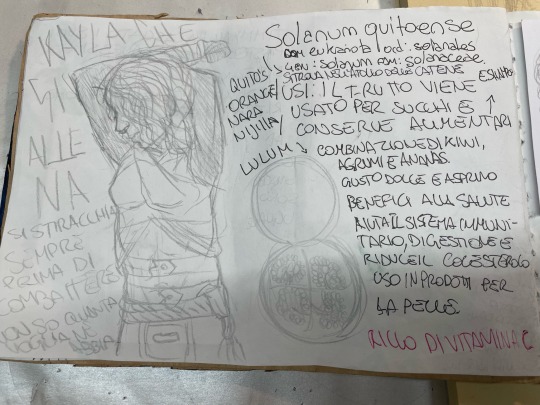 KAYLA CHE
SI
ALLE
NA
SI STIRACCHIA
SEMPRE
PRIMA DI
COMBATTERE
NON SO QUANTA
VOGLIA NE
ABBIA
Solanum quitoense
DOM: eukariota | ord: solanales
GEN: solanum FAM: solanaceae
QUITO'S
ORANGE/
NARA
NIJILLA/
LULUM
USI: IL FRUTTO VIENE
USATO PER SUCCHI E
CONSERVE ALIMENTARI
COMBINAZIONE DI KIWI,
AGRUMI E ANANAS.
GUSTO DOLCE E ASPRINO
BENEFICI ALLA SALUTE
AIUTA IL SISTEMA IMMUNI-
TARIO, DIGESTIONE E
RIDUCE IL COLESTEROLO
USO IN PRODOTTI PER
LA PELLE
RICCO DI VITAMINA C